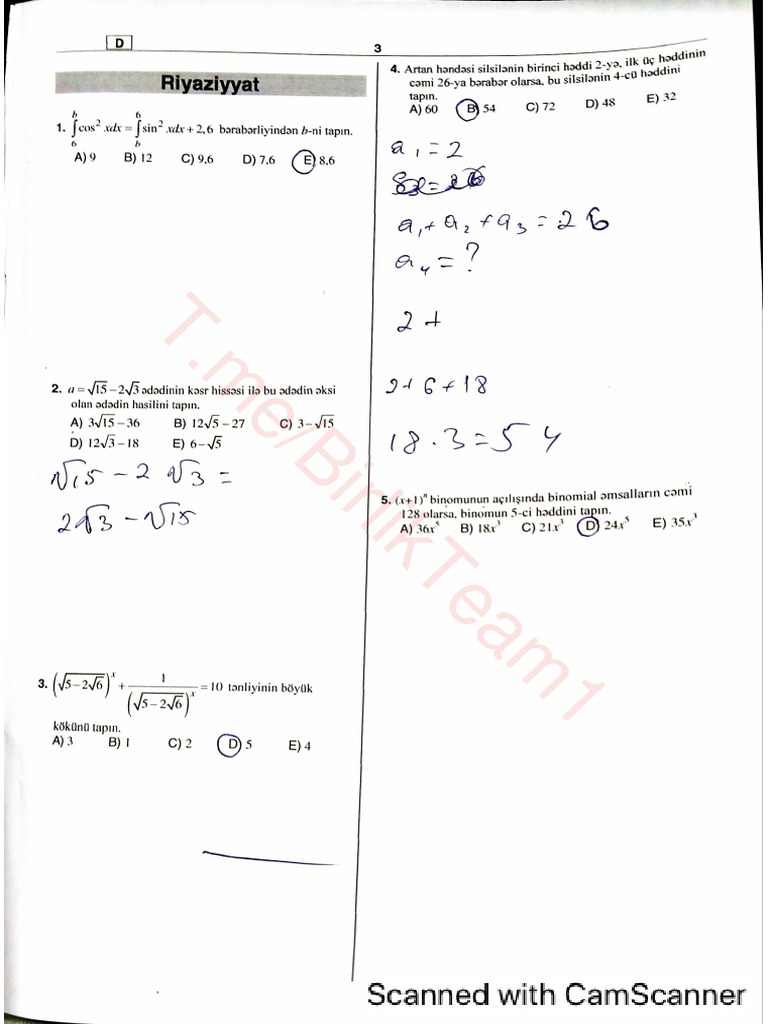 D
3
Riyaziyyat
1. ∫₆ᵇ cos² xdx = ∫ᵇ⁶ sin² xdx + 2,6 bərabərliyindən b-ni tapın.
A) 9 B) 12 C) 9,6 D) 7,6 E) 8,6
2. a = √15 − 2√3 ədədinin kəsr hissəsi ilə bu ədədin əksi
olan ədədin hasilini tapın.
A) 3√15 − 36 B) 12√5 − 27 C) 3 − √15
D) 12√3 − 18 E) 6 − √5
√15 − 2 √3 =
2√3 − √15
3. (√(5 − 2√6))ˣ + 1/(√(5 − 2√6))ˣ = 10 tənliyinin böyük
kökünü tapın.
A) 3 B) 1 C) 2 D) 5 E) 4
4. Artan həndəsi silsilənin birinci həddi 2-yə, ilk üç həddinin
cəmi 26-ya bərabər olarsa, bu silsilənin 4-cü həddini
tapın.
A) 60 B) 54 C) 72 D) 48 E) 32
a₁ = 2
a₁ + a₂ + a₃ = 26
a₄ = ?
2 +
2 + 6 + 18
18 . 3 = 54
5. (x+1)ⁿ binomunun açılışında binomial əmsalların cəmi
128 olarsa, binomun 5-ci həddini tapın.
A) 36x⁵ B) 18x³ C) 21x³ D) 24x⁵ E) 35x³
T.me/BirlikTeam1
Scanned with CamScanner